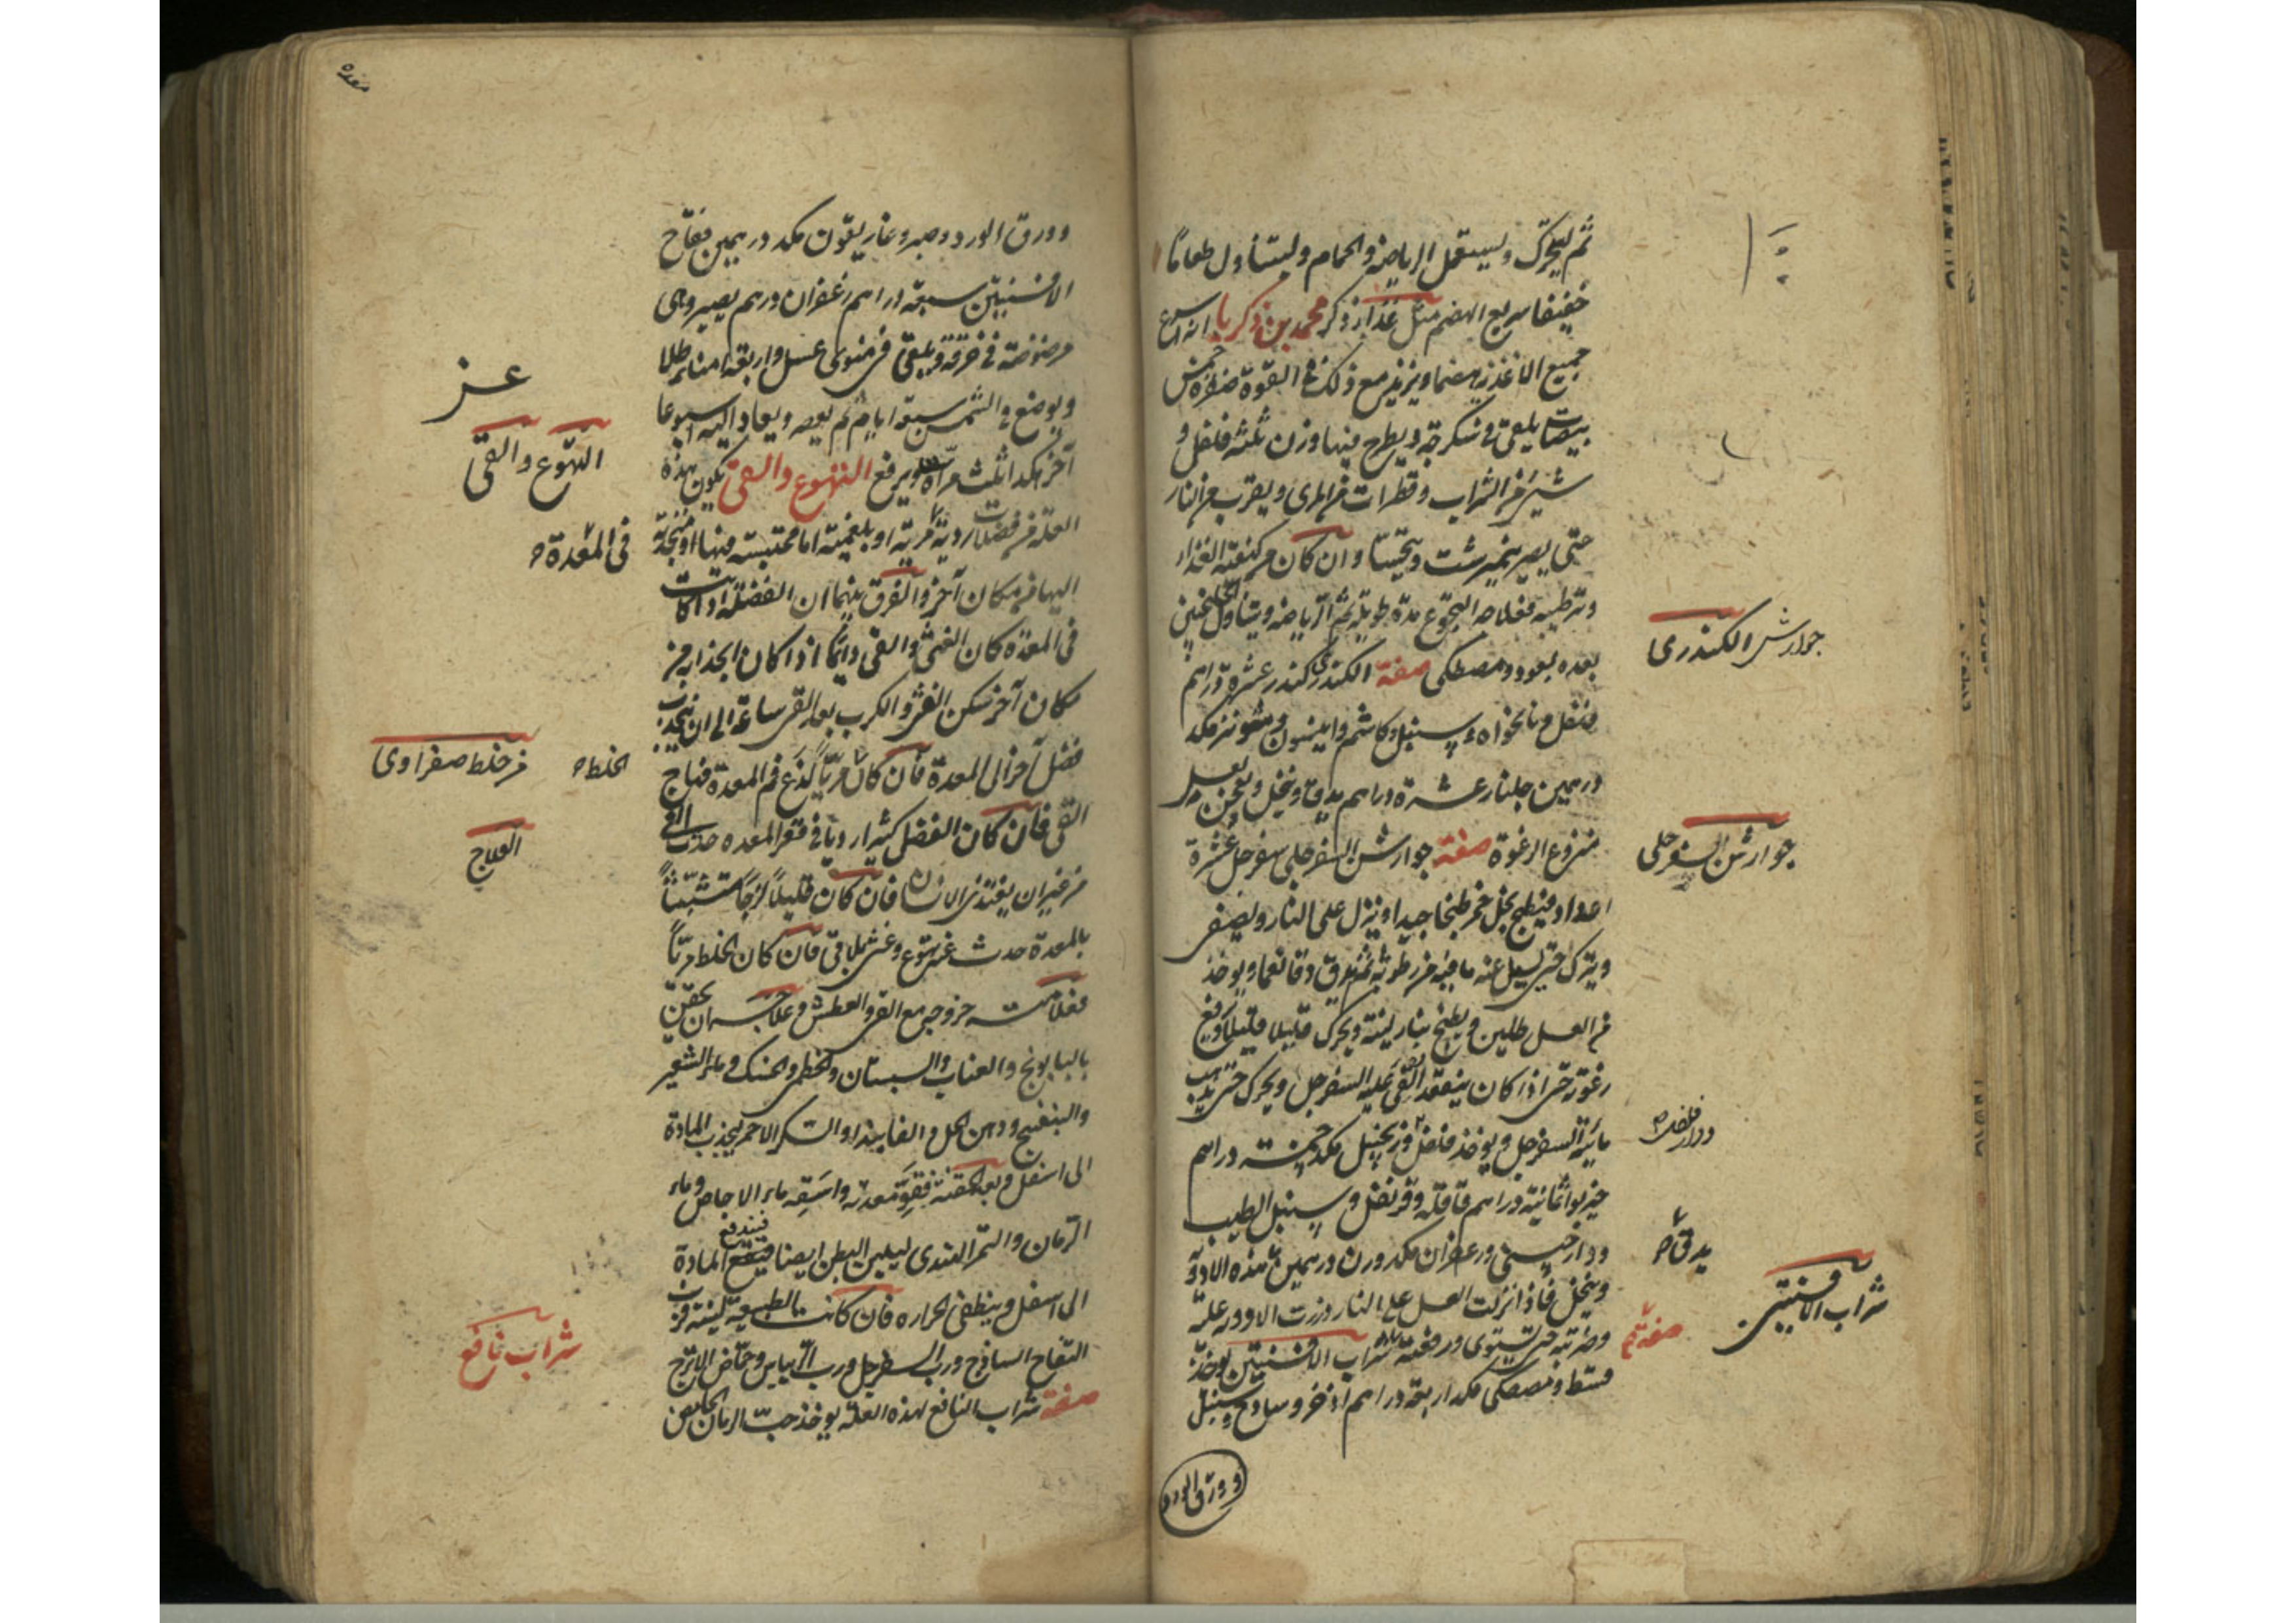 ثم ليتحرك وليستعمل الرياضة والحمام وليتناول طعاما
خفيفا سريع الهضم مثل غذاء ذكر محمد بن زكريا انه اسرع
جميع الاغذية هضما ويزيد مع ذلك في القوة صفرة خمس
بيضات يلقى في سكرجة ويطرح فيها وزن ثلثة فلفل و
شيئ من الشراب وقطرات من المرى ويقرب من النار
حتى يصير نيمبرشت ويتحسا وان كان من كيفية الغذاء
وترطيبه فعلاجه التجوع مدة طويلة ثم الرياضة ويتناول
بعده بعود ومصطكى صفة الكندرى كندر عشرة دراهم
فلفل ونانخواه وسنبل وكاشم وانيسون وشونيز مكد
درهمين جلنار عشرة دراهم يدق وينخل ويعجن بعسل
منزوع الرغوة صفة جوارشن السفرجلى سفرجل عشرة
اعداد فيطبخ بخل خمر طبخا جيدا وينزل على النار ويصفى
ويترك حتى يسيل عنه ما فيه من رطوبة ثم يدق دقا نعما ويوخذ
من العسل رطلين ويطبخ بنار لينة ويحرك قليلا قليلا
رغوته حتى اذا كان ينعقد القى عليه السفرجل ويحرك حتى يذهب
مائية السفرجل ويوخذ فلفل وزنجبيل مكد خمسة دراهم
خيربوا ثمانية دراهم قاقلة وقرنفل وسنبل الطيب
ودارصينى وزعفران مكد وزن درهمين هذه الادوية
وينخل فاذا نزلت العسل على النار ذرت الادويه عليه
وضربته حتى تستوى ورفعته شراب الافسنتين يوخذ
قسط ومصطكى مكد اربعة دراهم اذخر وساذج وسنبل
وورق الورد
جوارشن الكندرى
جوارشن السفرجلى
ودارفلفل
يدق
شراب الافسنتين
وورق الورد وصبر وغاريقون مكد درهمين فقاح
الافسنتين سبعة دراهم زعفران درهم يصير وهى
مرضوضة في خرقة ويلقى في منوى عسل واربعة امناء طلا
ويوضع في الشمس سبعة ايام ثم يعصر ويعاد اليه اسبوعا
آخر هكذا ثلث مرات ويرفع التهوع والقى تكون هذه
العلة من فضلات ردية مرية او بلغمية اما محتبسة فيها او
اليها من مكان آخر والفرق بينهما ان الفضلة اذا كانت
في المعدة كان الغثى والقى دائما اذا كان انجذابه من
مكان آخر سكن الغثى والكرب بعد القى ساعة الى ان ينجذب
فضل آخر الى المعدة فان كان مريا لذع فم المعدة فهاج
القى فان كان الفضل كثيرا رديا في قعر المعده حدث القى
من غير ان يغتذى الانسان فان كان قليلا لزجا متشبثا
بالمعدة حدث عنه تهوع وغثى بلا قى فان كان الخلط مريا
فعلامته خروجه مع القى والعطش وعلاجه ان يحقن
بالبابونج والعناب والسبستان والخطمى والحسك وماء الشعير
والبنفسج ودهن الحل والفانيذ او السكر الاحمر ليجذب المادة
الى اسفل وبعد الحقنة فقو معدته واسقه ماء الاجاص وماء
الرمان والتمر الهندى ليلين البطن ايضا فيندفع المادة
الى اسفل وينطفى الحراره فان كانت الطبيعة لينة فرب
التفاح الساذج ورب السفرجل ورب الريباس وحماض الاترج
صفة شراب النافع لهذه العلة يوخذ حب الرمان الحامض
التهوع والقى
في المعدة
من خلط صفراوى
الخلط
العلاج
شراب نافع